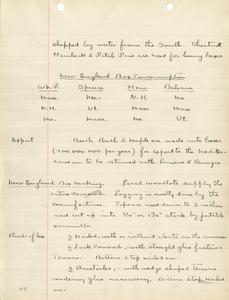 shipped by water from the South. Chestnut
Hemlock & Pitch Pine are used for heavy boxes
New England Box Consumption
W.P. Spruce Hem. Balsam
Mass. Me. N.H. Me.
N.H. Vt. Mass. Mass.
Me. Mass. Me. Vt.
Export Beech Birch & Maple are made into boxes
(200 000 000 per year) for export to the Mediterr-
anean to be returned with Lemons & Oranges
New England Box Making. Local woodlots supply the
entire demand. Logging is mostly done by the
manufacturer. Tapers used down to 3 inches
and cut up into stock by portable
sawmills.
Kinds of box 1 Nailed, with or without cleats on the corners
2 Lock Cornered, with straight glue fastened
Tenons. Bottom & top nailed on.
3 Dovetailed, - with wedge shaped tenons
rendering glue unnecessary, Bottom & top nailed